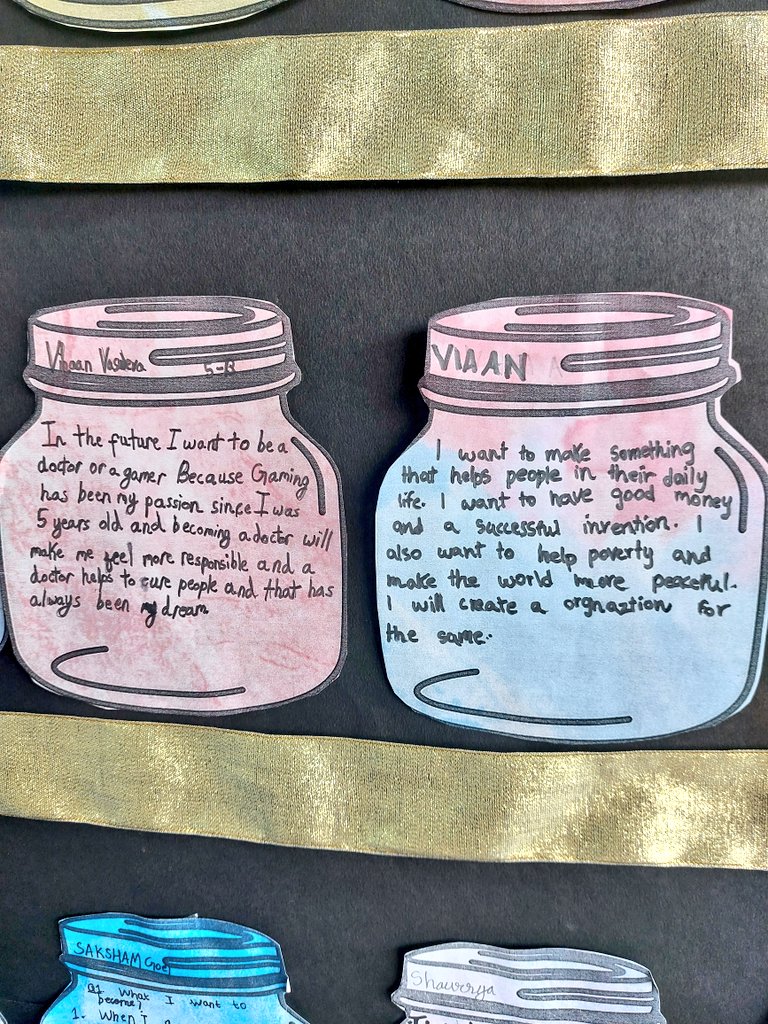 Vihaan Vasudeva 5-B
In the future I want to be a
doctor or a gamer Because Gaming
has been my passion since I was
5 years old and becoming a doctor will
make me feel more responsible and a
doctor helps to cure people and that has
always been my dream
VIAAN
I want to make something
that helps people in their daily
life. I want to have good money
and a successful invention. I
also want to help poverty and
make the world more peaceful.
I will create a orgnaztion for
the same.
SAKSHAM Goel
Q1 What I want to
become?
1. When I
Shaurya